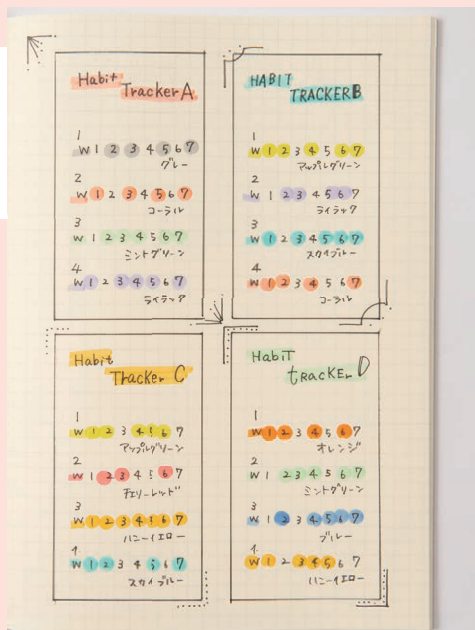 Habit
Tracker A
1
W 1 2 3 4 5 6 7
グレー
2
W 1 2 3 4 5 6 7
コーラル
3
W 1 2 3 4 5 6 7
ミントグリーン
4
W 1 2 3 4 5 6 7
ライラック
HABIT
TRACKER B
1
W 1 2 3 4 5 6 7
アップルグリーン
2
W 1 2 3 4 5 6 7
ライラック
3
W 1 2 3 4 5 6 7
スカイブルー
4
W 1 2 3 4 5 6 7
コーラル
Habit
Tracker C
1
W 1 2 3 4 5 6 7
アップルグリーン
2
W 1 2 3 4 5 6 7
チェリーレッド
3
W 1 2 3 4 5 6 7
ハニーイエロー
4
W 1 2 3 4 5 6 7
スカイブルー
HabiT
tRacKER D
1
W 1 2 3 4 5 6 7
オレンジ
2
W 1 2 3 4 5 6 7
ミントグリーン
3
W 1 2 3 4 5 6 7
ブルー
4
W 1 2 3 4 5 6 7
ハニーイエロー